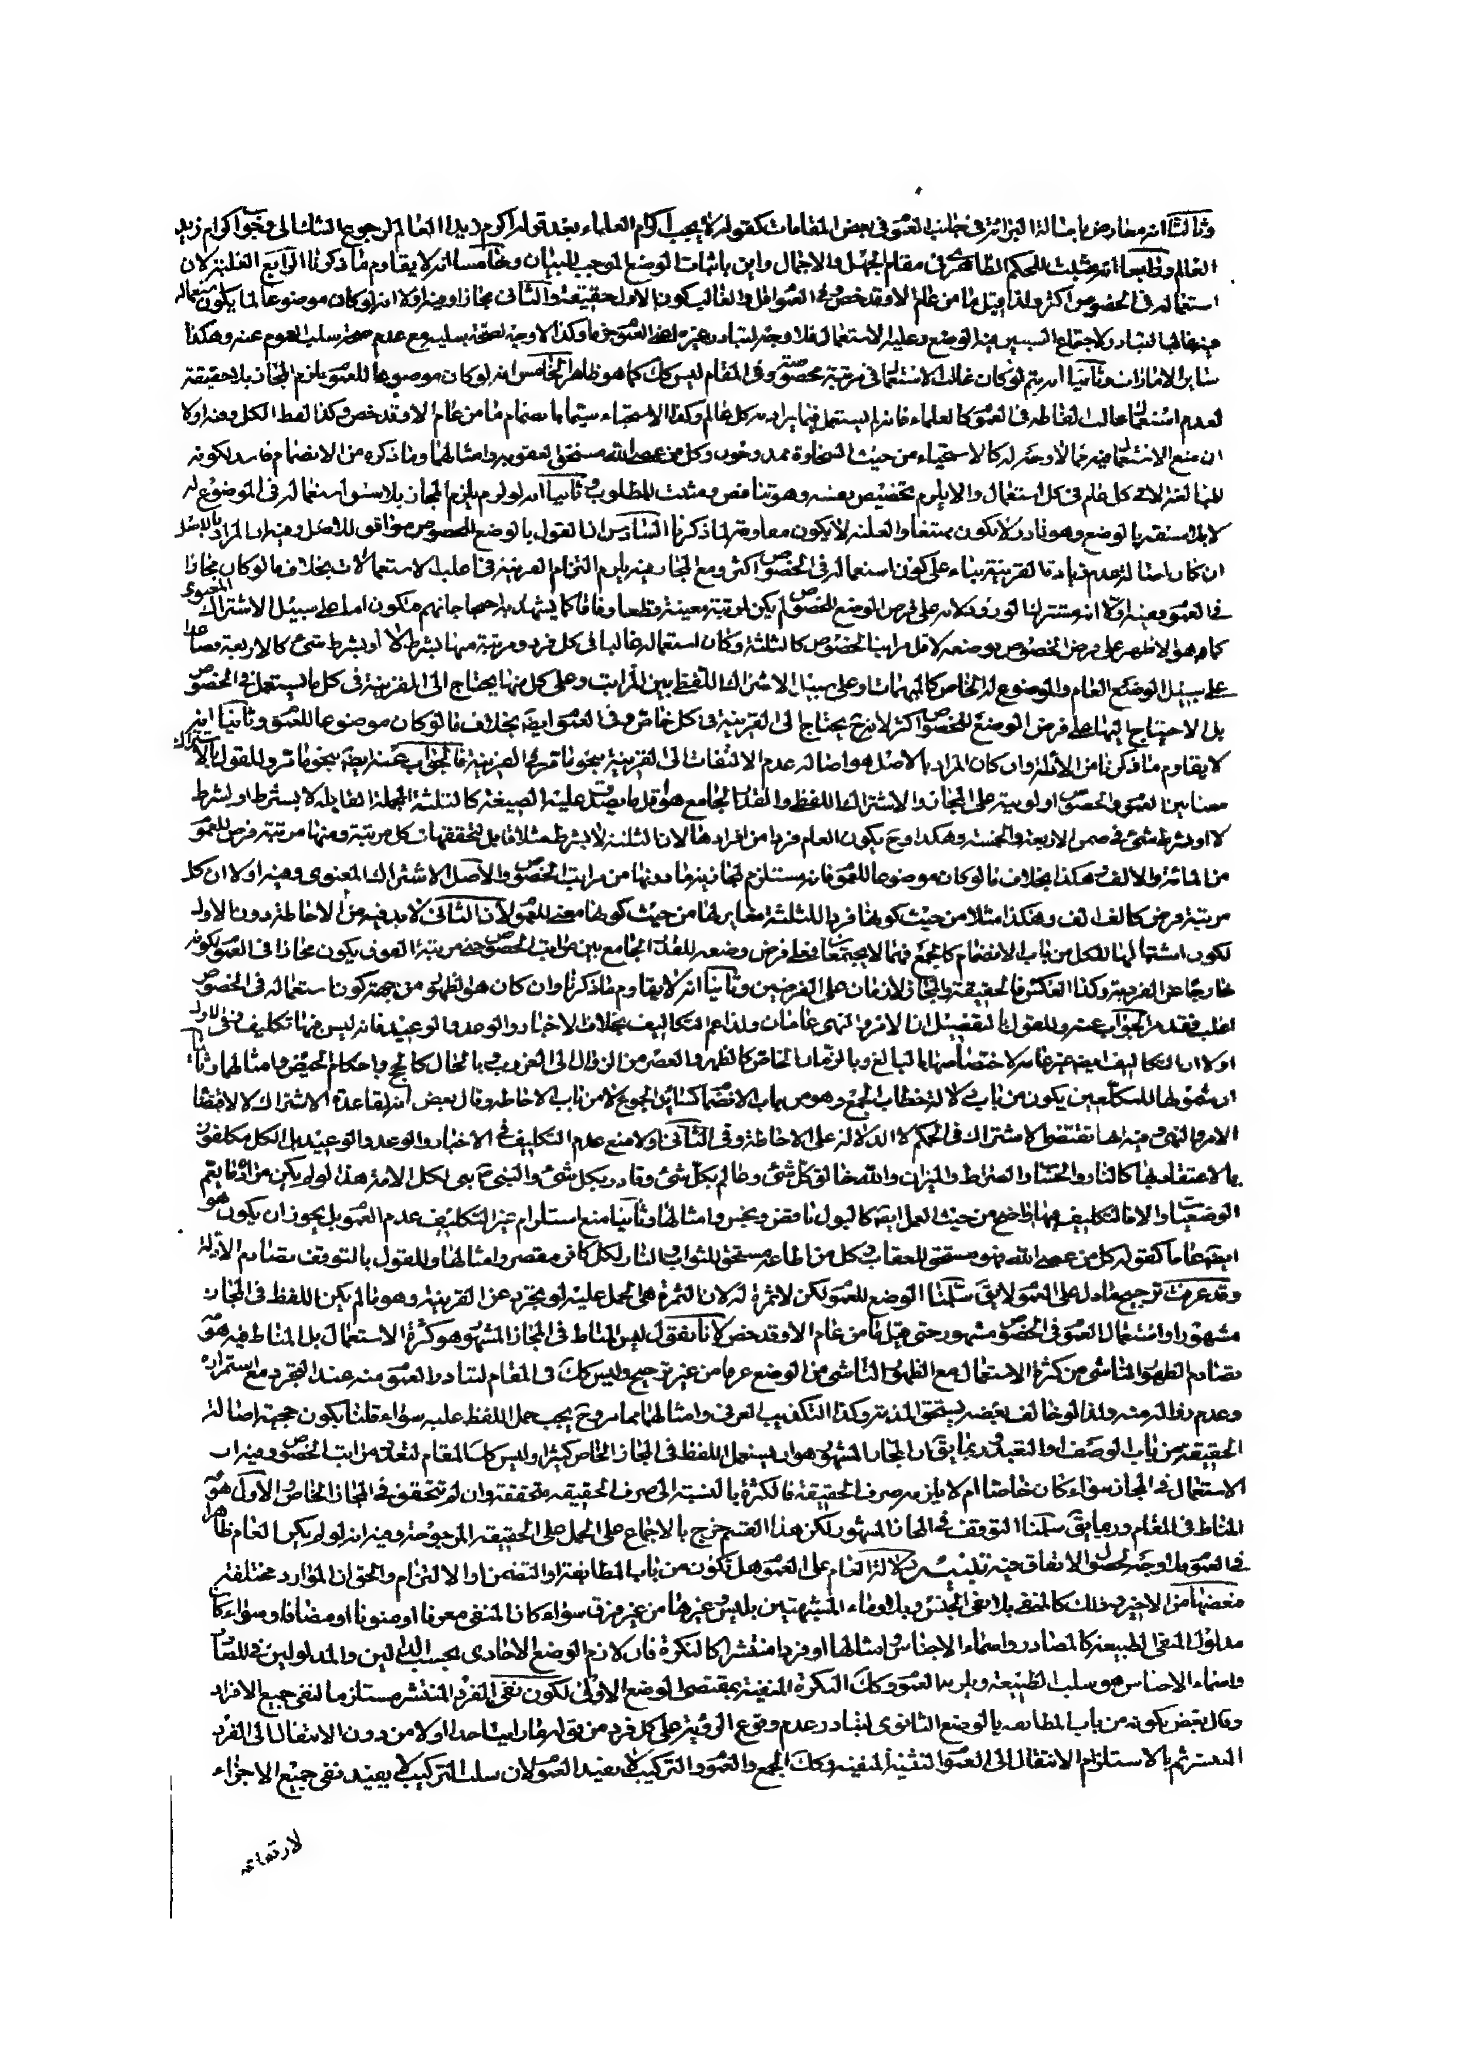 وثالثا انه معارض باصالة البرائة في جانب العموم في بعض المقامات كقوله لا يجب اكرام العلماء بعد قوله اكرم زيدا العالم لرجوع الشك الى وجوب اكرام زيد
العالم ورابعا انه مثبت للحكم الظاهري في مقام الجهل والاجمال واين باثبات الوضع الموجب للبيان وخامسا انه لا يقاوم ما ذكرنا الرابع الغلبة لان
استعماله في الخصوص اكثر ولذا قيل ما من عام الا وقد خص وفي العموم اقل والغالب كون الاول حقيقة والثاني مجازا وفيه اولا انه لو كان موضوعا لما يكون استعماله
فيه غالبا لتبادر لاجتماع السببين فيه الوضع وغلبة الاستعمال فلا وجه لتبادر غيره اعني العموم وكذا لا وجه لصحة سلبه مع عدم صحة سلب العموم عنه وهكذا
ساير الامارات وثانيا انه يتم لو كان غالب الاستعمال في مرتبة مخصوصة وفي المقام ليس كك كما هو ظاهر الخامس انه لو كان موضوعا للعموم يلزم المجاز بلا حقيقة
لعدم استعمال غالب الفاظه في العموم كالعلماء فانه لم يستعمل فيما يراد به كل عالم وكذا الاستقراء سيما بانضمام ما من عام الا وقد خص وكذا لفظ الكل وفيه اولا
ان منع الاستعمال فيه مما لا وجه له كالاسخياء من حيث السخاوة ممدوحون وكل من عصى الله مستحق لعقوبة وامثالهما وما ذكره من الانضمام فاسد لكونه
للمبالغة لا في كل عام في كل استعمال والا يلزم تخصيص نفسه وهو تناقض ومثبت للمطلوب وثانيا انه لو لم يلزم المجاز بلا سبق استعماله في الموضوع له
لا بلا مسبقية بالوضع وهو نادر لا يكون ممتنعا والغلبة لا يكون مقاومة لما ذكرنا السادس ان القول بالوضع للخصوص موافق للاصل وفيه ان المراد بالاصل
ان كان اصالة عدم زيادة القرينة بناء على كون استعماله في الخصوص اكثر ومع المجاز فيه يلزم التزام القرينة في اغلب الاستعمالات بخلاف ما لو كان مجازا
في العموم ففيه اولا انه مشترك الورود لانه على فرض الوضع للخصوص لم يكن لمرتبة معينة قطعا وفاقا كما يشهد به احتجاجاتهم فتكون اما على سبيل الاشتراك المعنوي
كما هو الاظهر على فرض الخصوص بوضعه لاقل مراتب الخصوص كالثلثة وكان استعماله غالبا في كل فرد ومرتبة منها بشرط لا او بشرط شئ كالاربعة فصاعدا
على سبيل الوضع العام والموضوع له الخاص كالمبهمات او على سبيل الاشتراك اللفظي بين المراتب وعلى كل منها يحتاج الى القرينة في كل ما يستعمل في الخصوص
بل الاحتياج اليها على فرض الوضع للخصوص اكثر لانه ح يحتاج الى القرينة في كل خاص وفي العموم ايضا بخلاف ما لو كان موضوعا للعموم وثانيا انه
لا يقاوم ما ذكرنا من الادلة وان كان المراد بالاصل هو اصالة عدم الالتفات الى القرينة فالجواب عنه ايضا بنحو ما مر وللقول بالاشتراك
معنا بين العموم والخصوص اولويته على المجاز والاشتراك اللفظي والقدر الجامع هو اقل ما يصدق عليه الصيغة كالثلثة المجملة القابلة لا بشرط او بشرط
لا او بشرط شئ في ضمن الاربعة والخمسة وهكذا وح يكون العام فردا من افرادها لان الثلثة لا بشرط مثلا قابل لتحققها في كل مرتبة ومنها مرتبة فرض للعموم
من المائة والالف وهكذا بخلاف ما لو كان موضوعا للعموم فانه مستلزم لمجازية ما دونها من مراتب الخصوص والاصل الاشتراك المعنوي وفيه اولا ان كل
مرتبة فرض كالف الف وهكذا مثلا من حيث كونها فردا للثلثة مغاير لها من حيث كونها معنى للعموم لان الثاني لا بد فيه من الاحاطة دون الاول
لكون اشتمالها للكل من باب الانضمام كالجمع فهما لا يجتمعان فعلى فرض وضعه للقدر الجامع بين مراتب الخصوص حتى مرتبة الفوق يكون مجازا في العموم لكونه
خارجا عن الفرد وكذا العكس فالحقيقة والمجاز لازمان على الفرضين وثانيا انه لا يقاوم ما ذكرنا وان كان هو الظهور من جهة كون استعماله في الخصوص
اغلب فقد مر الجواب عنه وللقول بالتفصيل ان الامر والنهي عامان ولذا عم التكاليف بخلاف الاخبار والوعد والوعيد فانه ليس فيها تكليف وفي الاول
اولا ان التكاليف ايضا غير عامة لاختصاصها بالبالغ وبالزمان الخاص كالظهر والعصر من الزوال الى الغروب وبالحال كالحج واحكام الحيض وامثالهما وثانيا
ان شمولها للمكلفين يكون من باب دلالة خطاب الجمع وهو من باب الانضمام كسائر الجموع لا من باب الاحاطة وقال بعض انه لقاعدة الاشتراك لا لاقتضاء
الامر والنهي وفيه انها تقتضي الاشتراك في الحكم لا الدلالة على الاحاطة وفي الثاني اولا منع عدم التكليف في الاخبار والوعد والوعيد بل الكل مكلفون
بالاعتقاد بها كالنار والحساب والصراط والميزان والله خالق كل شئ وعالم بكل شئ وقادر بكل شئ والنبي ص نبي لكل الامة هذا لو لم يكن مرادنا يتم
الوضعيات والا فالتكليف فيها واضح من حيث العمل ايضا كالبول ناقض ونجس وامثالها وثانيا منع استلزام غير التكليف عدم العموم بل يجوز ان يكون هو
ايضا عاما كقوله كل من عصى الله فهو مستحق للعقاب وكل من اطاعه مستحق للثواب والنار لكل كافر مقصر وامثالها وللقول بالتوقف تصادم الادلة
وقد عرفت ترجيح ما دل على العموم لا يق سلمنا الوضع للعموم لكن لا ثمرة له لان الثمرة هي الحمل عليه لو تجرد عن القرينة وهو ما لم يكن اللفظ في المجاز
مشهورا واستعمال العموم في الخصوص مشهور حتى قيل ما من عام الا وقد خص لانا نقول ليس المناط في المجاز المشهور هو كثرة الاستعمال بل المناط فيه هو
تصادم الظهور الناشي من كثرة الاستعمال مع الظهور الناشي من الوضع عرفا من غير ترجيح وليس كك في المقام لتبادر العموم منه عند التجرد مع استمراره
وعدم زواله منه ولذا لو خالف بعضه يستحق المذمة وكذا التكذيب العرفي وامثالهما مما مر وح يجب حمل اللفظ عليه سواء قلنا بكون حجية اصالة
الحقيقة من باب الوصف او التعبد وربما يق ان المجاز المشهور هو ان يستعمل اللفظ في المجاز الخاص كثيرا وليس كك المقام لتعدد مراتب الخصوص وفيه ان
الاستعمال في المجاز سواء كان خاصا ام لا يلزمه صرف الحقيقة فالكثرة بالنسبة الى صرف الحقيقة متحققة وان لم تتحقق في المجاز الخاص والاول هو
المناط في المقام وربما يق سلمنا التوقف في المجاز المشهور لكن هذا القسم خرج بالاجماع على الحمل على الحقيقة المرجوحة وفيه انه لو لم يكن العام ظاهرا
في العموم فلا وجه لحصول الاتفاق فيه تذنيب دلالة العام على العموم هل تكون من باب المطابقة او التضمن او الالتزام والحق ان الموارد مختلفة
فبعضها من الاخير وذلك كالمنفي بلا نفي الجنس وبلا وماء المشبهتين بليس وغيرها من غير فرق سواء كان المنفي معرفا او منونا او مضافا وسواء كان
مدلول المنفي الطبيعة كالمصادر واسماء الاجناس وامثالها او فردا منتشرا كالنكرة فان لازم الوضع الاحادي بحسب الدالين والمدلولين في المصادر
واسماء الاجناس هو سلب الطبيعة ويلزمه العموم وكك النكرة المنفية بمقتضى الوضع الاولى لكون نفي الفرد المنتشر مستلزما لنفي جميع الافراد
وقال بعض بكونه من باب المطابقة بالوضع الثانوي لتبادر عدم وقوع الرؤية على كل فرد من قوله ما رايت احدا اولا من دون الانتقال الى الفرد
المنتشر ثم بالاستلزام الانتقال الى العموم والتثنية المنفية وكك الجمع والعموم والتركيب لا يفيد العموم لان سلب التركيب لا يفيد نفي جميع الاجزاء
لارتفاعه